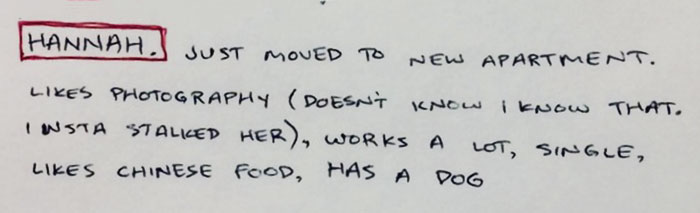 HANNAH. JUST MOVED TO NEW APARTMENT.
LIKES PHOTOGRAPHY (DOESN'T KNOW I KNOW THAT.
I INSTA STALKED HER), WORKS A LOT, SINGLE,
LIKES CHINESE FOOD, HAS A DOG